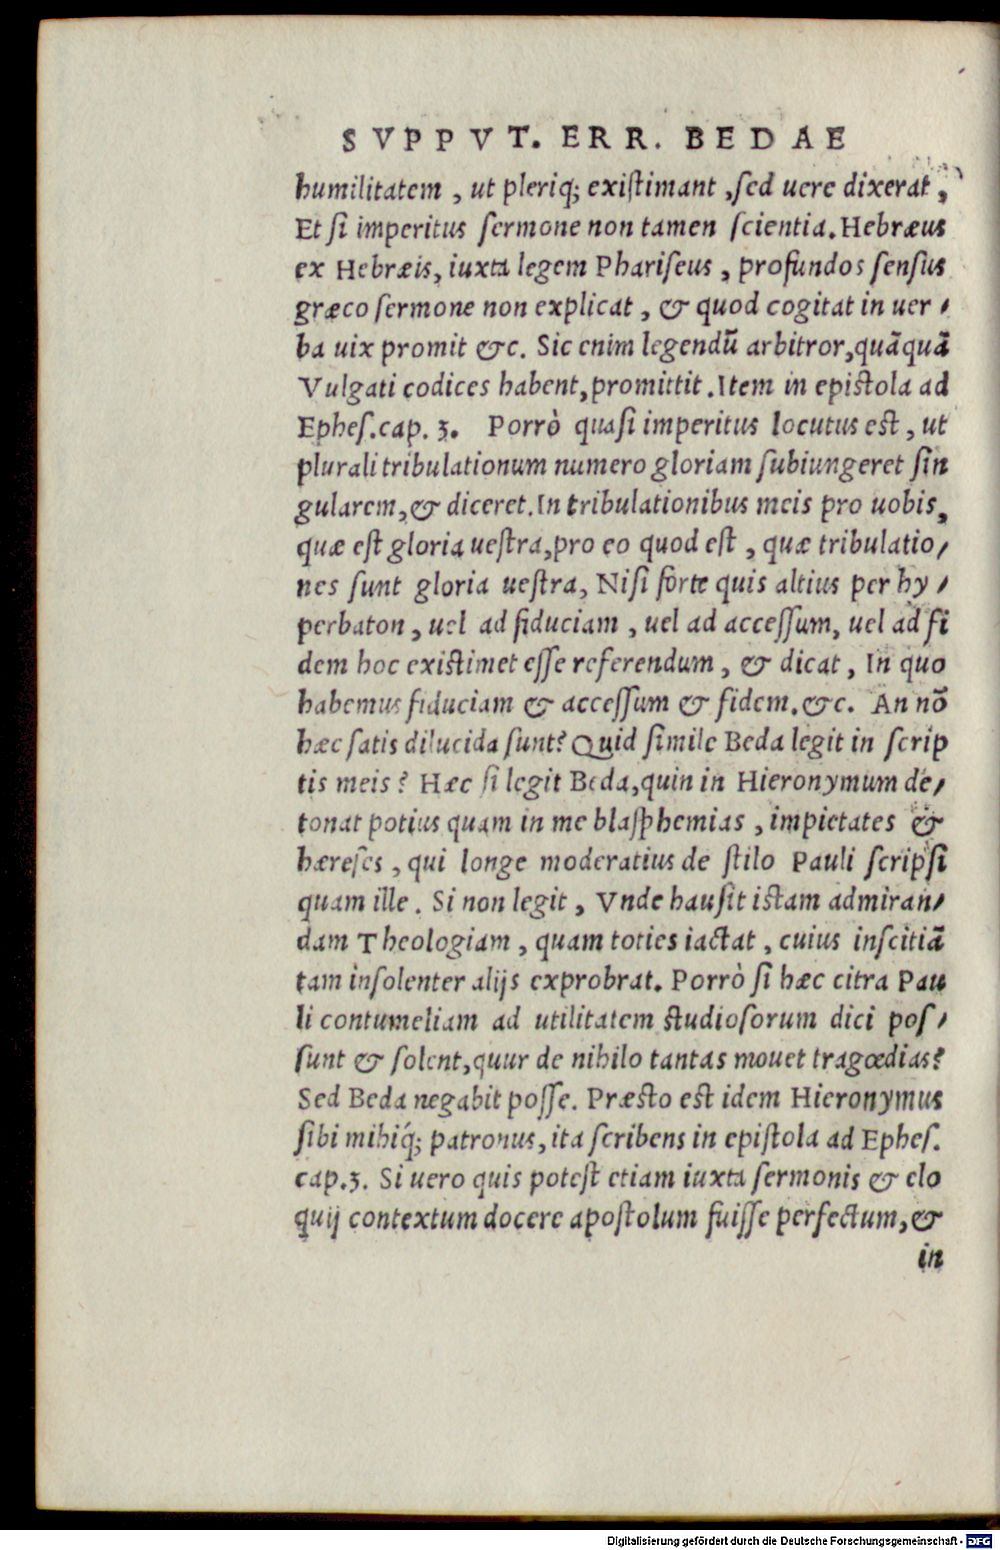 SVPPVT. ERR. BEDAE
humilitatem, ut pleriq; exiſtimant, ſed uere dixerat,
Et ſi imperitus ſermone non tamen ſcientia. Hebræus
ex Hebræis, iuxta legem Phariſeus, profundos ſenſus
græco ſermone non explicat, & quod cogitat in uer/
ba uix promit &c. Sic enim legendū arbitror, quāquā
Vulgati codices habent, promittit. Item in epiſtola ad
Epheſ. cap. 3. Porrò quaſi imperitus locutus eſt, ut
plurali tribulationum numero gloriam ſubiungeret ſin
gularem, & diceret. In tribulationibus meis pro uobis,
quæ eſt gloria ueſtra, pro eo quod eſt, quæ tribulatio/
nes ſunt gloria ueſtra, Niſi forte quis altius per hy/
perbaton, uel ad fiduciam, uel ad acceſſum, uel ad fi
dem hoc exiſtimet eſſe referendum, & dicat, In quo
habemus fiduciam & acceſſum & fidem. &c. An nō
hæc ſatis dilucida ſunt? Quid ſimile Beda legit in ſcrip
tis meis? Hæc ſi legit Beda, quin in Hieronymum de/
tonat potius quam in me blaſphemias, impietates &
hæreſes, qui longe moderatius de ſtilo Pauli ſcripſi
quam ille. Si non legit, Vnde hauſit iſtam admiran/
dam Theologiam, quam toties iactat, cuius inſcitiā
tam inſolenter alijs exprobrat. Porrò ſi hæc citra Pau
li contumeliam ad utilitatem ſtudioſorum dici poſ/
ſunt & ſolent, quur de nihilo tantas mouet tragœdias?
Sed Beda negabit poſſe. Præſto eſt idem Hieronymus
ſibi mihiq́; patronus, ita ſcribens in epiſtola ad Epheſ.
cap. 3. Si uero quis poteſt etiam iuxta ſermonis & elo
quij contextum docere apoſtolum fuiſſe perfectum, &
in
Digitalisierung gefördert durch die Deutsche Forschungsgemeinschaft - DFG